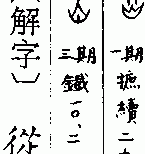 一期 摭續 二
三期 鐵一〇、二
解字〕 從